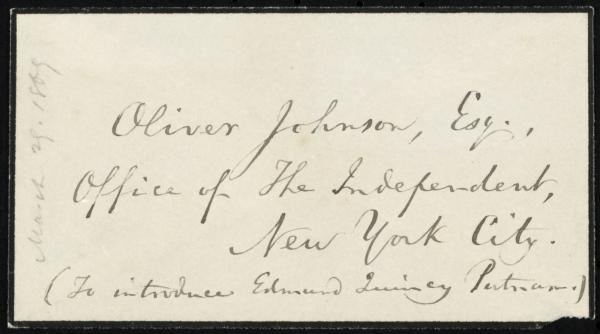 Oliver Johnson, Esq.,
Office of The Independent,
New York City.
(To introduce Edmund Quincy Putnam.)
March 29. 1869